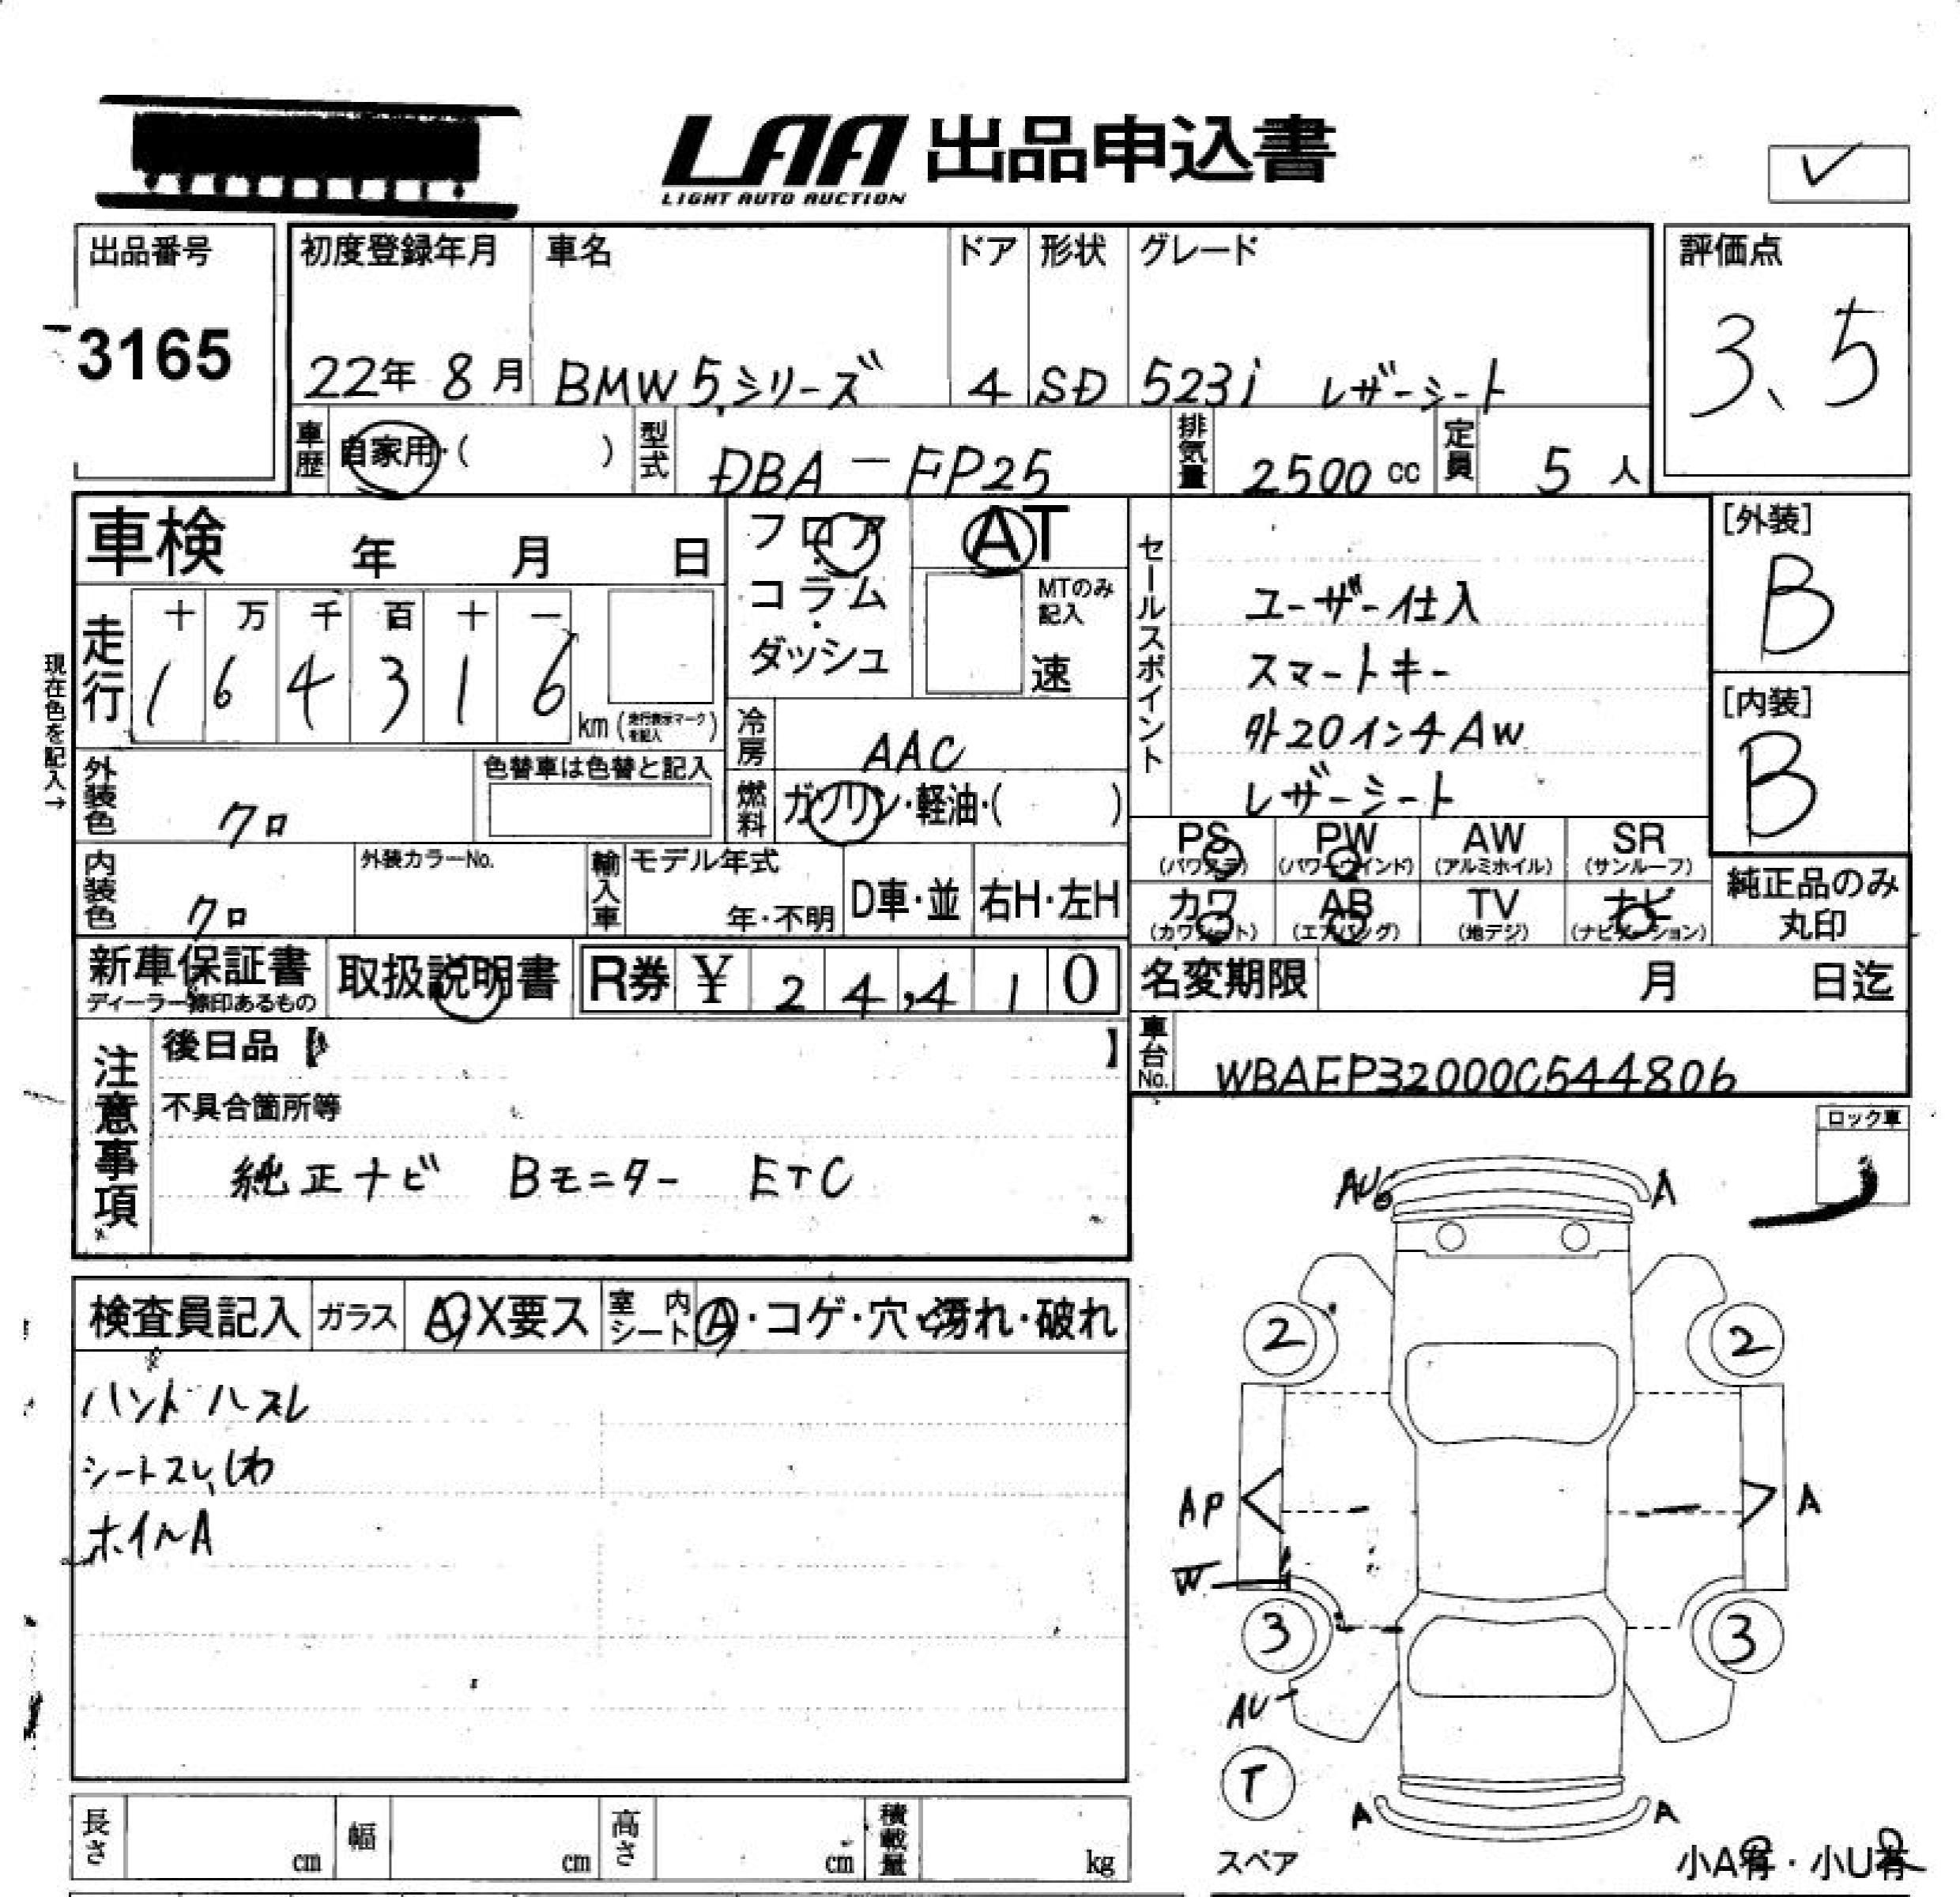 LAA 出品申込書
LIGHT AUTO AUCTION
✓
出品番号
3165
初度登録年月 車名 ドア 形状 グレード
22年 8月 BMW 5シリーズ 4 SD 523i レザーシート
評価点
3、5
車歴 自家用・( ) 型式 DBA-FP25 排気量 2500cc 定員 5人
車検 年 月 日
フロア・コラム・ダッシュ
AT
MTのみ記入
速
現在色を記入→
走行 十 万 千 百 十 一
1 6 4 3 1 6 km (走行表示マークを記入)
冷房 AAC
燃料 ガソリン・軽油・( )
外装色 クロ
色替車は色替と記入
内装色 クロ
外装カラーNo.
輸入車 モデル年式 年・不明 D車・並 右H・左H
セールスポイント
ユーザー仕入
スマートキー
外20インチAW
レザーシート
[外装]
B
[内装]
B
PS (パワステ) PW (パワーウインド) AW (アルミホイル) SR (サンルーフ)
カワ (カワシート) AB (エアバッグ) TV (地デジ) ナビ (ナビゲーション)
純正品のみ丸印
新車保証書
ディーラー捺印あるもの
取扱説明書
R券 ¥ 2 4,4 1 0
名変期限 月 日迄
車台No. WBAFP32000C544806
注意事項
後日品【 】
不具合箇所等
純正ナビ Bモニター ETC
ロック車
検査員記入 ガラス A・X要ス 室内シート A・コゲ・穴・汚れ・破れ
ハンドルスレ
シートスレ、しわ
ホイルA
AU A
2 2
AP A
W
3 3
AU
T
スペア
A A
小A有・小U有
長さ cm 幅 cm 高さ cm 積載量 kg